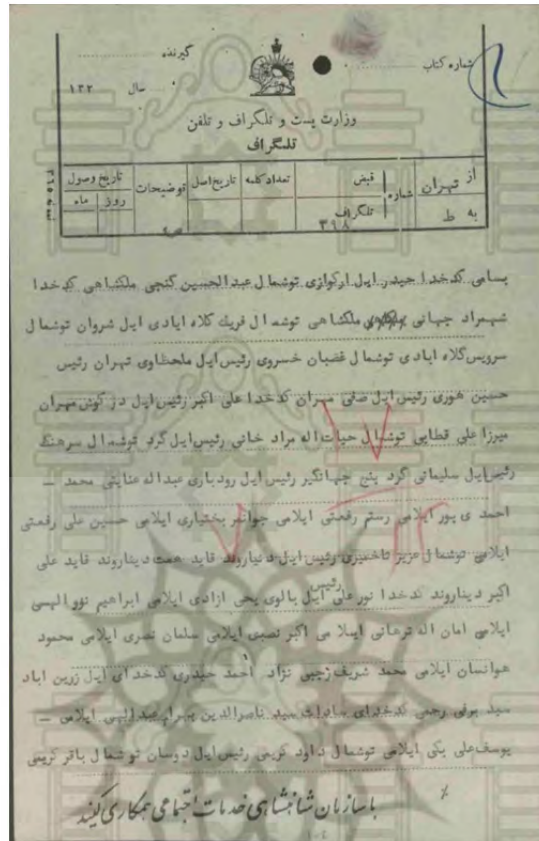 شماره کتاب
گیرنده
سال ۱۳۲
وزارت پست و تلگراف و تلفن
تلگراف
از تهران
به ط
شماره
قبض
تلگراف ۳۱۸
تعداد کلمه
تاریخ اصل
توضیحات
تاریخ وصول
روز
ماه
بسامی کدخدا حیدر ایل ارکوازی توشمال عبدالحسین گنجی ملکشاهی کدخدا
شهمراد جهانی ملکشاهی توشمال فریك کلاه ابادی ایل شروان توشمال
سرویس کلاه ابادی توشمال غضبان خسروی رئیس ایل ملخطاوی تهران رئیس
حسین هوری رئیس ایل صفی مهران کدخدا علی اکبر رئیس ایل مهران
میرزا علی قطابی توشمال حیات اله مراد خانی رئیس ایل کرد توشمال سرهنگ
رئیس ایل سلیمانی کرد پنج جهانگیر رئیس ایل رودباری عبداله عنایتی محمد —
احمدی پور ایلامی رستم رفعتی ایلامی جوانمر بختیاری ایلامی حسین علی رفعتی
ایلامی توشمال عزیز رئیس ایل دنیاروند قاید همت دیناروند قاید علی
اکبر دیناروند کدخدا نور علی رئیس ایل بالوی یحی ازادی ایلامی ابراهیم نورالهی
ایلامی امان اله ایلامی اکبر نصری ایلامی سلمان نصری ایلامی محمود
هواسان ایلامی محمد شریف رجبی نژاد احمد حیدری کدخدای ایل زرین اباد
سید برفی رحمی کدخدای سادات سید ناصرالدین بهرام عبدالهی ایلامی —
یوسفعلی بکی ایلامی توشمال داود کریمی رئیس ایل دوسان توشمال باقر کریمی
با سازمان شاهنشاهی خدمات اجتماعی همکاری کنید